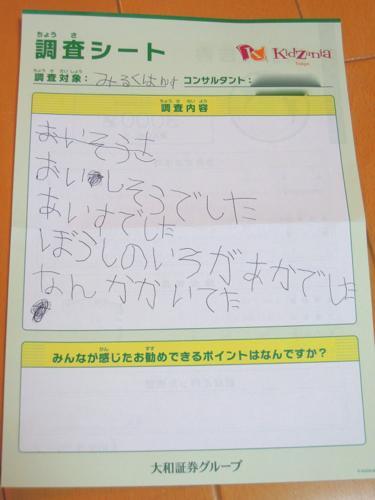 ちょう さ
調査シート
KidZania
Tokyo
ちょう さ たいしょう
調査対象：みるくはかす コンサルタント：
ちょう さ ない よう
調査内容
おいそうさ
おいしそうでした
あいすでした
ぼうしのいろがあかでした
なんかかいてた
みんなが感じたお勧めできるポイントはなんですか？
かん
すす
大和証券グループ